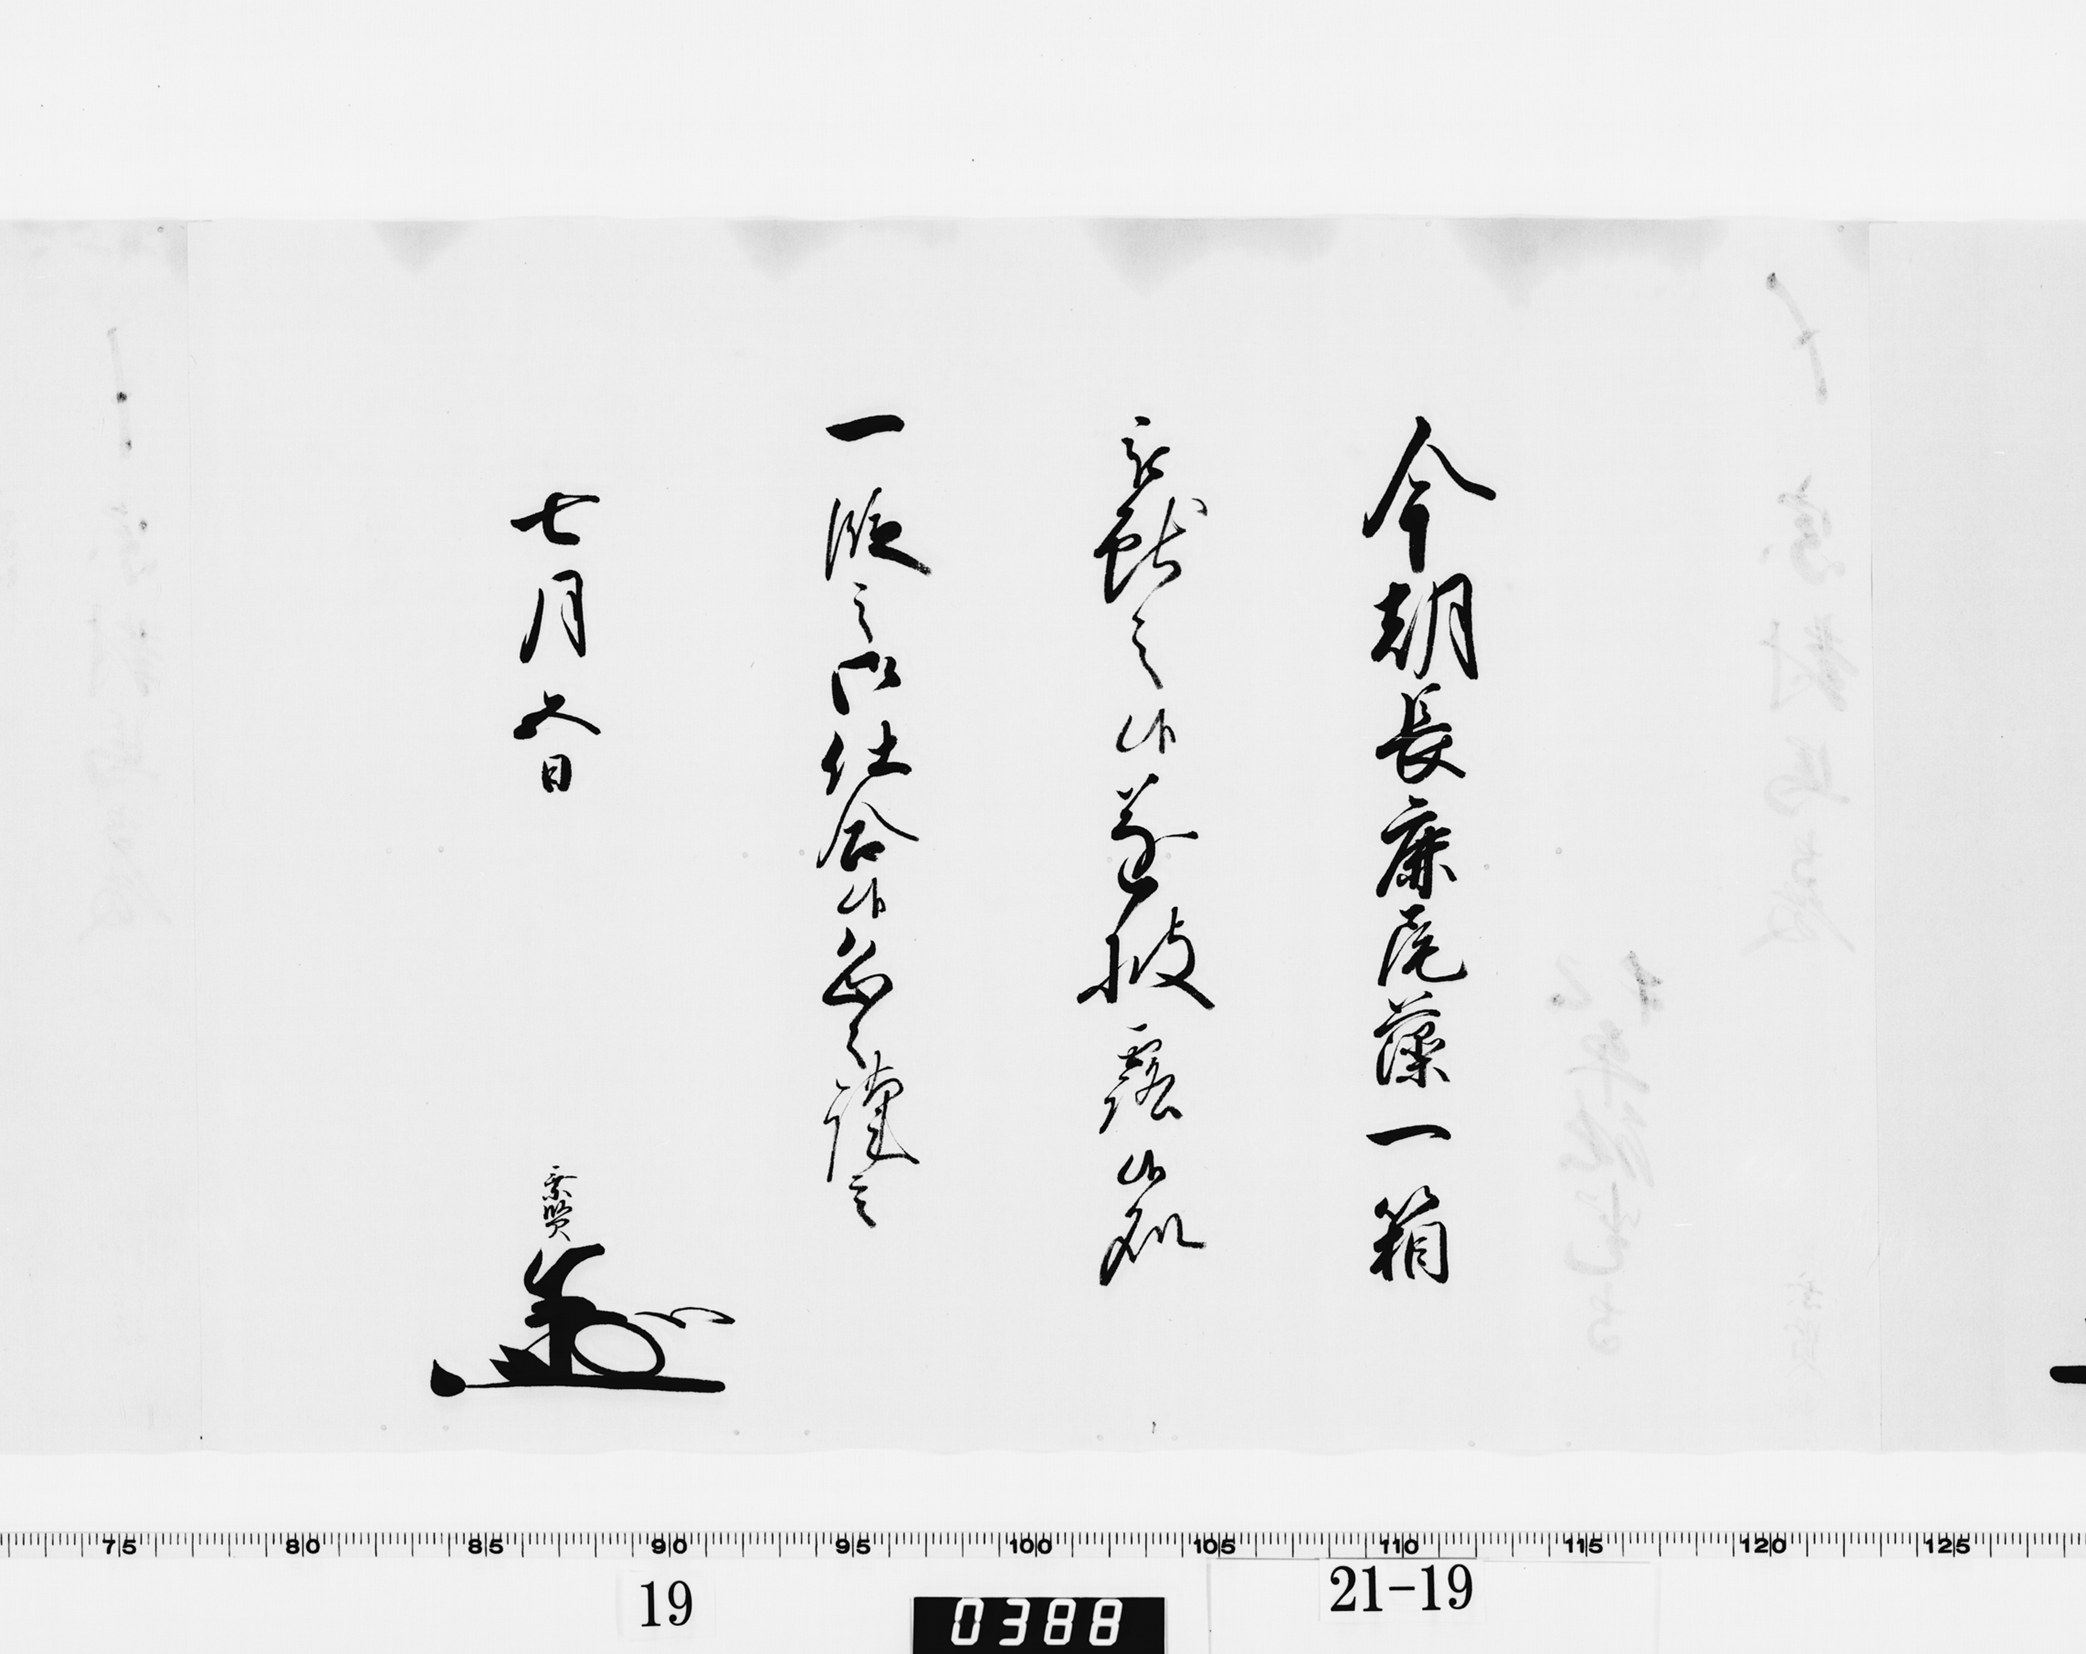 今朝長鹿尾藻一箱
被献之候遂披露候処
一段之御仕合候恐々謹言
七月六日
乗賢
75 80 85 90 95 100 105 110 115 120 125
19
0388
21-19